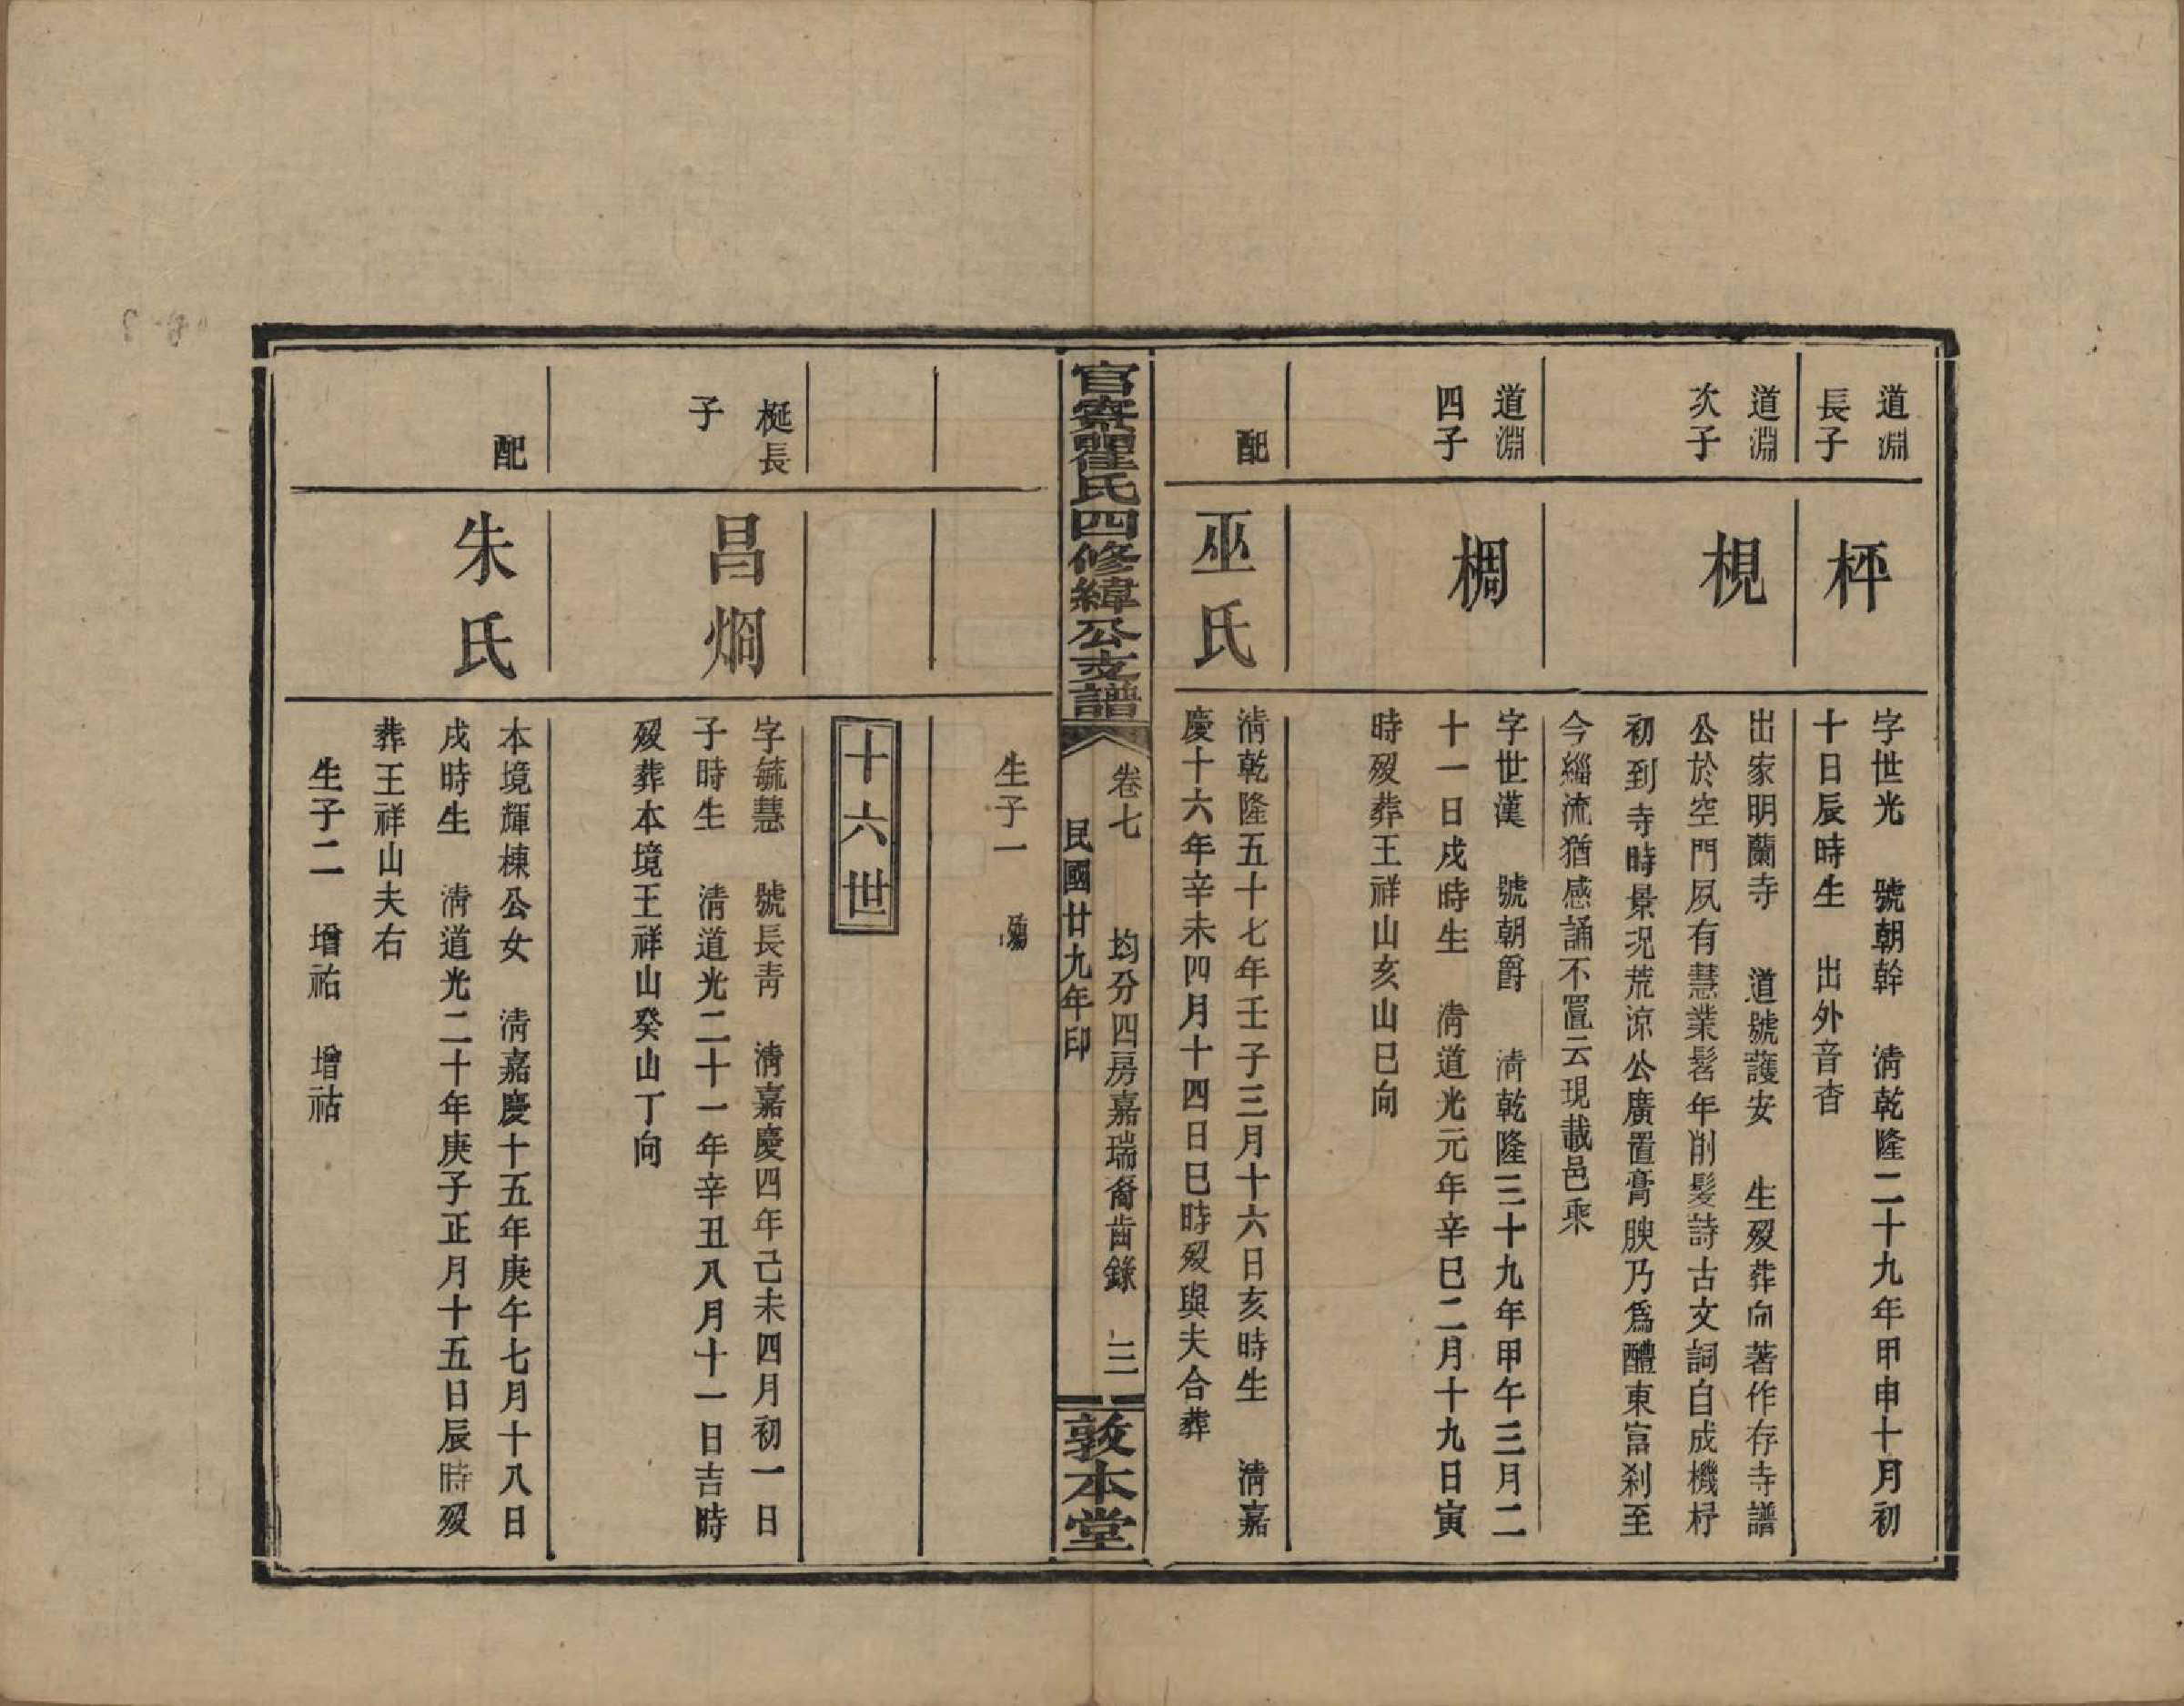 道淵
長子
枰
字世光　號朝幹　淸乾隆二十九年甲申十月初
十日辰時生　出外音杳
道淵
次子
梘
出家明蘭寺　道號護安　生歿葬向著作存寺譜
公於空門夙有慧業髫年削髮詩古文詞自成機杼
初到寺時景況荒涼公廣置膏腴乃爲醴東富刹至
今緇流猶感誦不置云現載邑乘
道淵
四子
椆
字世漢　號朝爵　淸乾隆三十九年甲午三月二
十一日戌時生　淸道光元年辛巳二月十九日寅
時歿葬王祥山亥山巳向
配
巫氏
淸乾隆五十七年壬子三月十六日亥時生　淸嘉
慶十六年辛未四月十四日巳時歿與夫合葬
官寮瞿氏四修緯公支譜
卷七　均分四房嘉瑞裔齒錄　三
民國廿九年印
敦本堂
生子一　殤
十六世
梃長
子
昌烱
字毓慧　號長靑　淸嘉慶四年己未四月初一日
子時生　淸道光二十一年辛丑八月十一日吉時
歿葬本境王祥山癸山丁向
配
朱氏
本境輝棟公女　淸嘉慶十五年庚午七月十八日
戌時生　淸道光二十年庚子正月十五日辰時歿
葬王祥山夫右
生子二　增祐　增祜